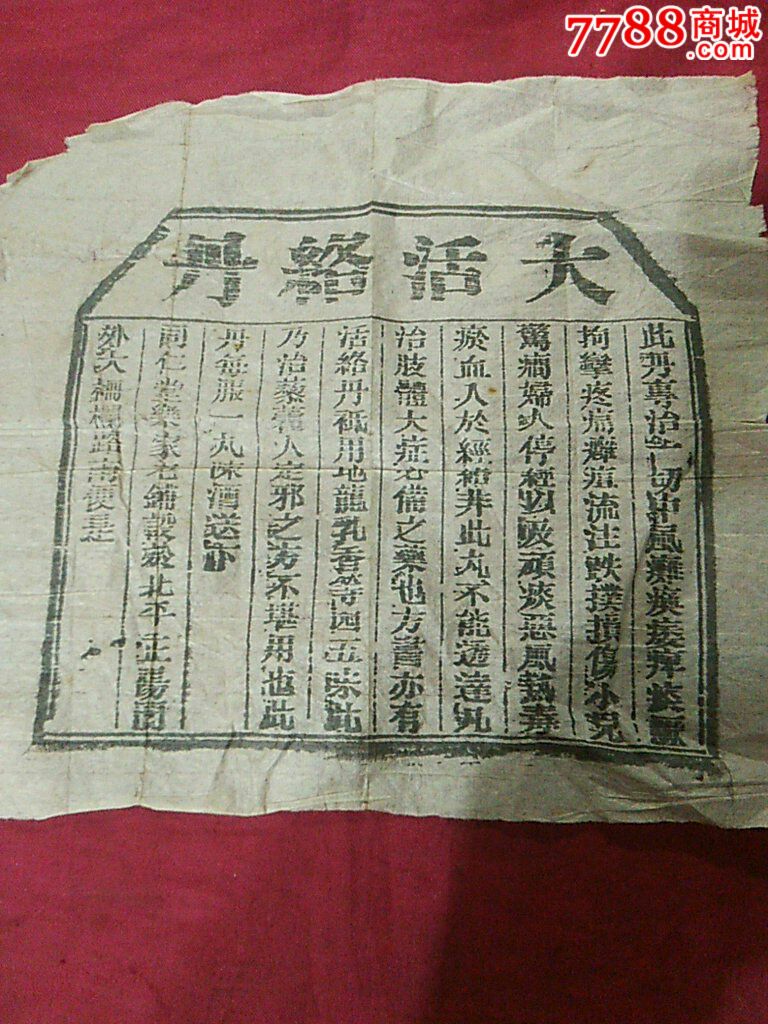 7788商城
.com
大活絡丹
此丹專治一切中風癱瘓痿痺痰厥
拘攣疼痛癰疽流注跌撲損傷小兒
驚癇婦人停經以及頑痰惡風熱毒
瘀血入於經絡非此丸不能透達凡
治肢體大症必備之藥也方書亦有
活絡丹祗用地龍乳香等四五味此
乃治藜藿人定邪之方不堪用也此
丹每服一丸陳酒送下
同仁堂樂家老鋪設於北平正陽門
外大柵欄路南便是